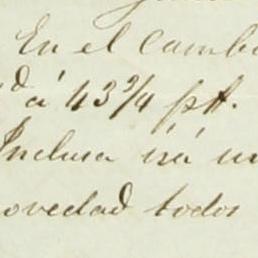 En el camb
á 43 3/4 ptt.
Inclusa irá un
ovedad todos